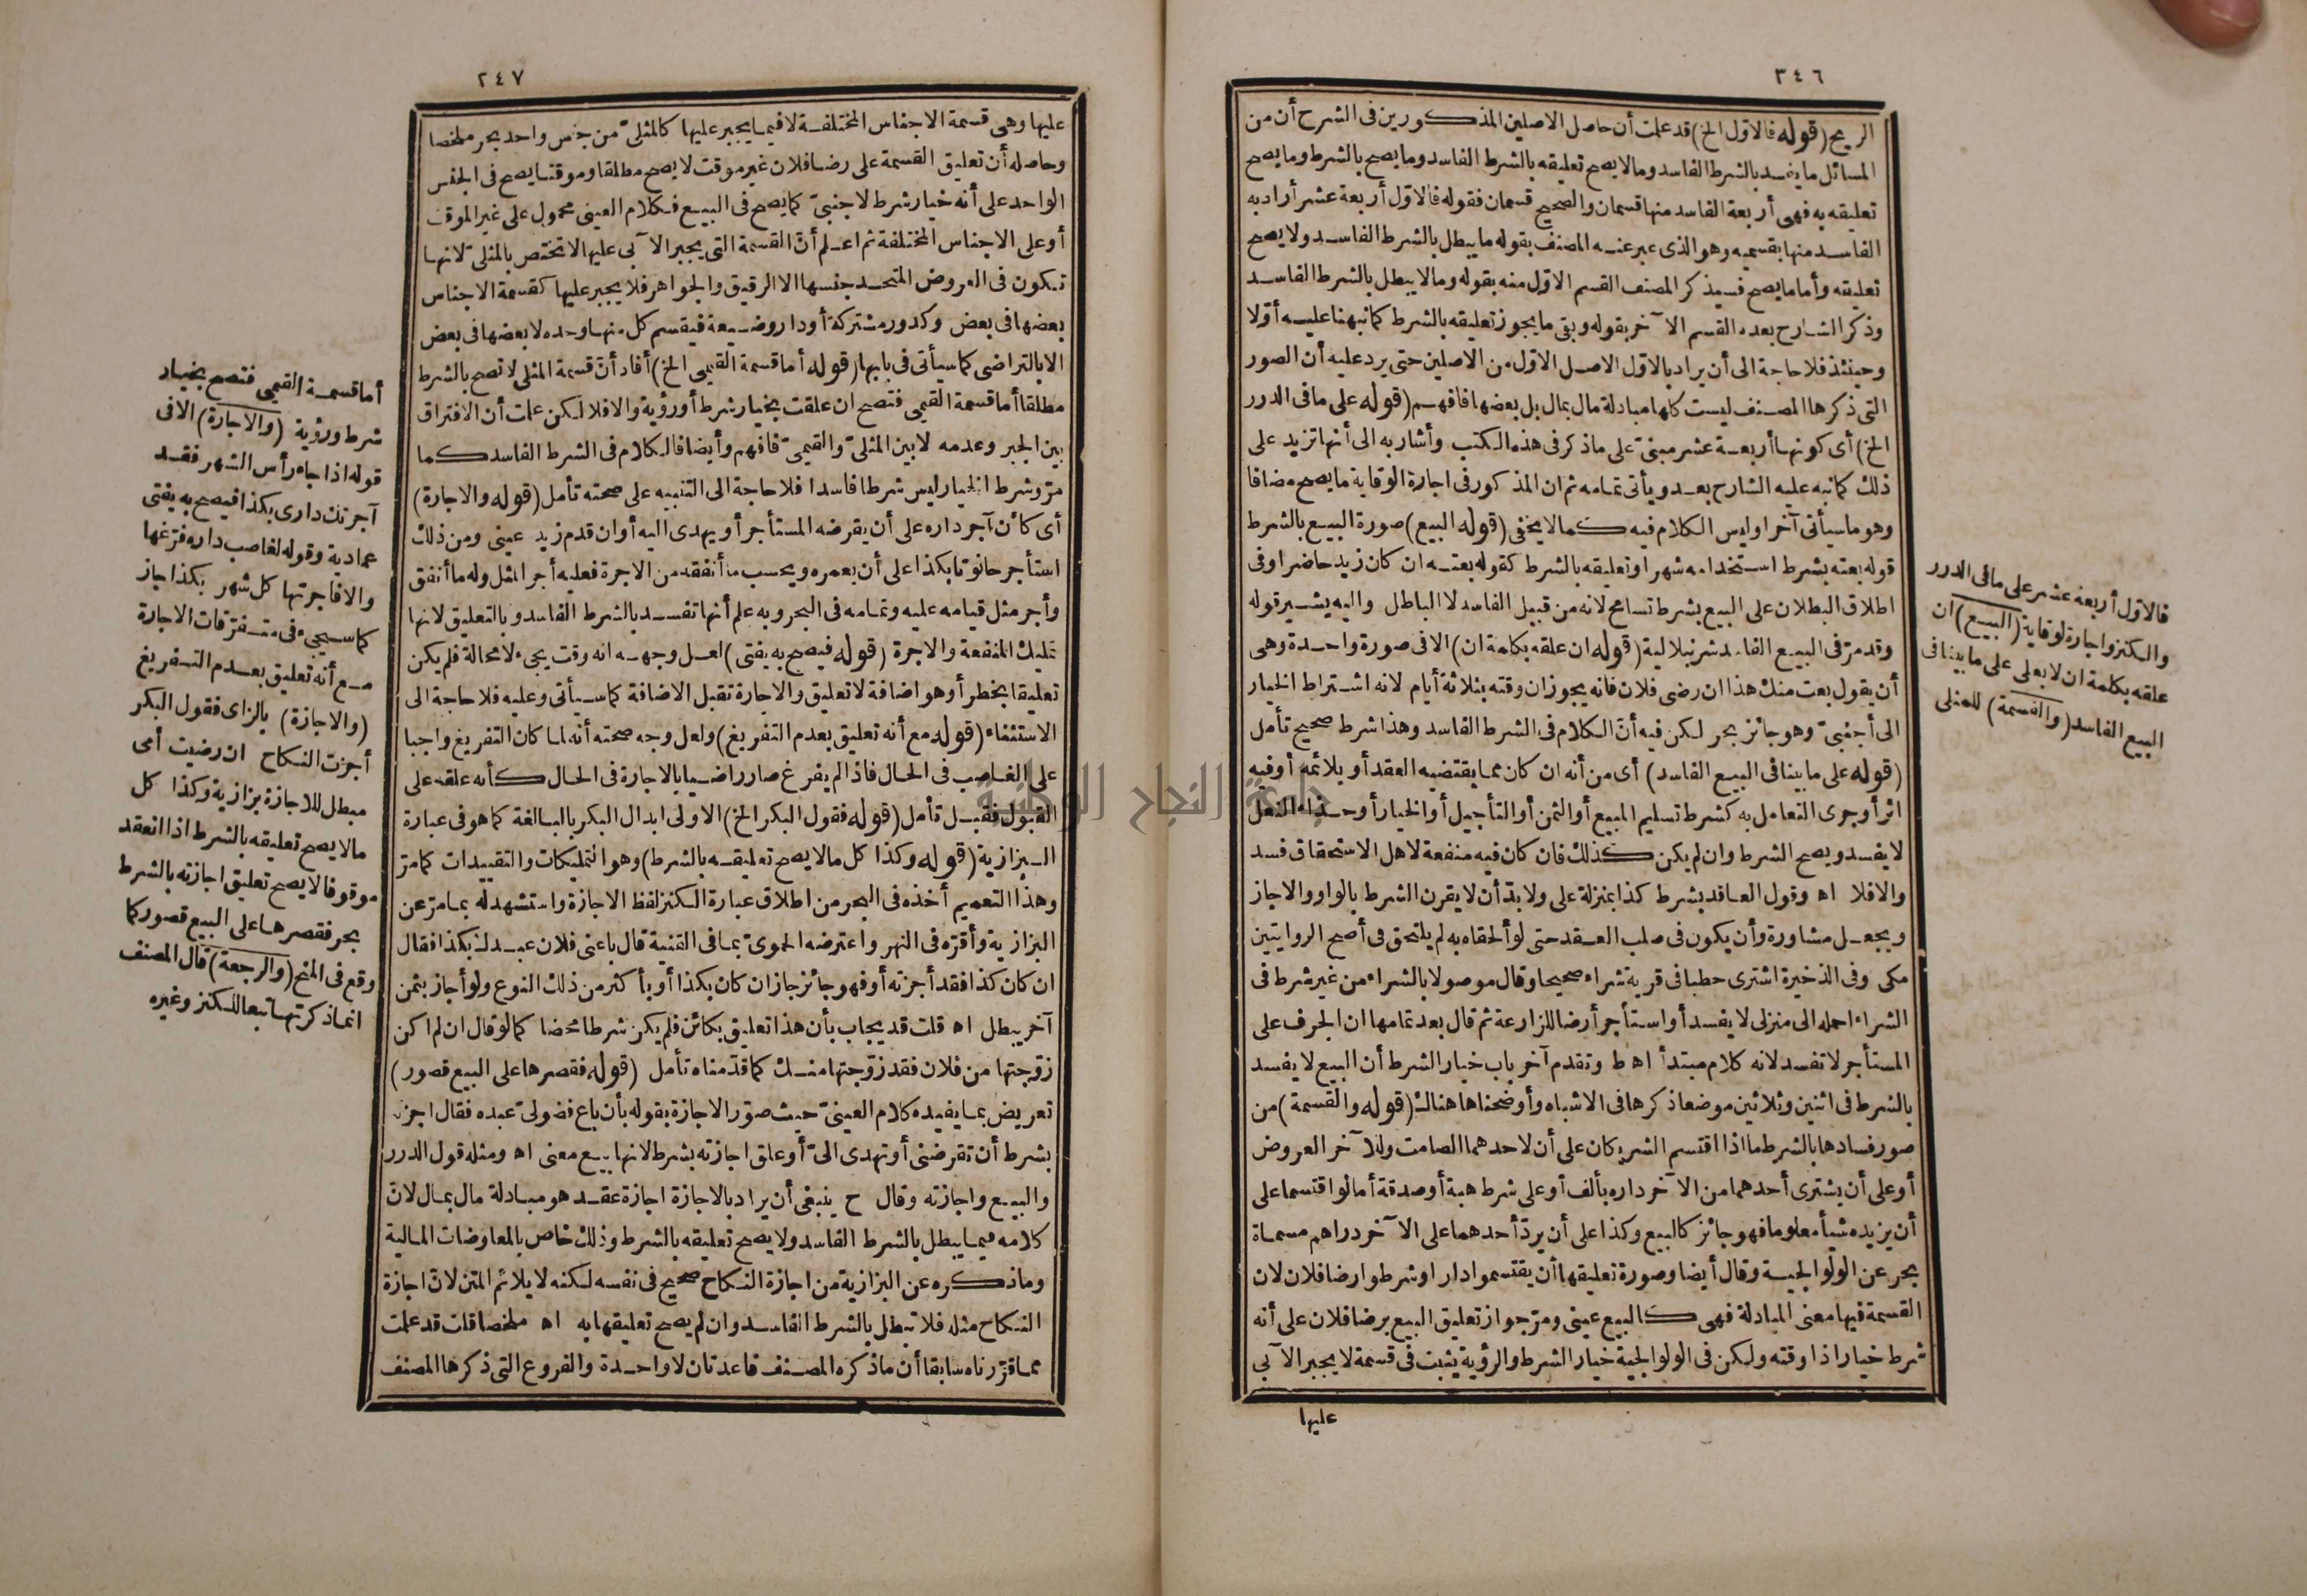 ٣٤٦
الريح (قوله فالاوّل الخ) قد علمت أن حاصل الاصلين المذكورين فى الشرح أن من
المسائل ما يفسد بالشرط الفاسد وما لا يصح تعليقه بالشرط الفاسد وما يصح بالشرط وما يصح
تعليقه به فهى أربعة الفاسد منها قسمان والصحيح قسمان فقوله فالاوّل أربعة عشر أراد به
الفاسد منها بقسميه وهو الذى عبر عنه المصنف بقوله ما يبطل بالشرط الفاسد ولا يصح
تعليقه وأما ما يصح فسيذكر المصنف القسم الاوّل منه بقوله وما لا يبطل بالشرط الفاسد
وذكر الشارح بعده القسم الآخر بقوله وبقى ما يجوز تعليقه بالشرط كما نبهنا عليه أوّلا
وحينئذ فلا حاجة الى أن يراد بالاوّل الاصل الاوّل من الاصلين حتى يرد عليه أن الصور
التى ذكرها المصنف ليست كلها مبادلة مال بمال بل بعضها فافهم (قوله على ما فى الدرر
الخ) أى كونها أربعة عشر مبنىّ على ما ذكر فى هذه الكتب وأشار به الى أنها تزيد على
ذلك كما نبه عليه الشارح بعد ويأتى تمامه ثم ان المذكور فى اجارة الوقاية ما يصح مضافا
وهو ما سيأتى آخرا وليس الكلام فيه كما لا يخفى (قوله البيع) صورة البيع بالشرط
قوله بعته بشرط استخدامه شهرا وتعليقه بالشرط كقوله بعته ان كان زيد حاضرا وفى
اطلاق البطلان على البيع بشرط تسامح لانه من قبيل الفاسد لا الباطل واليه يشير قوله
وقد مرّ فى البيع الفاسد شرنبلالية (قوله ان علقه بكلمة ان) الا فى صورة واحدة وهى
أن يقول بعت منك هذا ان رضى فلان فانه يجوز ان وقته بثلاثة أيام لانه اشتراط الخيار
الى أجنبىّ وهو جائز بحر لكن فيه أن الكلام فى الشرط الفاسد وهذا شرط صحيح تأمل
(قوله على ما بينا فى البيع الفاسد) أى من أنه ان كان مما يقتضيه العقد أو يلائمه أو فيه
اثر أو جرى التعامل به كشرط تسليم المبيع أو الثمن أو التأجيل أو الخيار أو حذاء النعل
لا يفسد ويصح الشرط وان لم يكن كذلك فان كان فيه منفعة لاهل الاستحقاق فسد
والا فلا اه وقول العاقد بشرط كذا بمنزلة على ولا بدّ أن لا يقرن الشرط بالواو والا جاز
ويجعل مشاورة وأن يكون فى صلب العقد حتى لو ألحقاه به لم يلتحق فى أصح الروايتين
مكى وفى الذخيرة اشترى حطبا فى قرية شراء صحيحا وقال موصولا بالشراء من غير شرط فى
الشراء احمله الى منزلى لا يفسد أو استأجر أرضا للزارعة ثم قال بعد تمامها ان الجرف على
المستأجر لا تفسد لانه كلام مبتدأ اه ط وتقدم آخر باب خيار الشرط أن البيع لا يفسد
بالشرط فى اثنين وثلاثين موضعا ذكرها فى الاشباه وأوضحناها هناك (قوله والقسمة) من
صور فسادها بالشرط ما اذا اقتسم الشريكان على أن لاحدهما الصامت وللآخر العروض
أو على أن يشترى أحدهما من الآخر داره بألف أو على شرط هبة أو صدقة أما لو اقتسما على
أن يزيده شيأ معلوما فهو جائز كالبيع وكذا على أن يردّ أحدهما على الآخر دراهم مسماة
بحر عن الولوالجية وقال أيضا وصورة تعليقها أن يقتسموا دارا وشرطوا رضا فلان لان
القسمة فيها معنى المبادلة فهى كالبيع عينى ومرّ جواز تعليق البيع برضا فلان على أنه
شرط خيار اذا وقته ولكن فى الولوالجية خيار الشرط والرؤية يثبت فى قسمة لا يجبر الآبى
عليها
فالاوّل أربعة عشر على ما فى الدرر
والكنز واجارة لوقاية (البيع) ان
علقه بكلمة ان لا بعلى على ما بينا فى
البيع الفاسد (والقسمة) للمثلى
٢٤٧
عليها وهى قسمة الاجناس المختلفة لا فيما يجبر عليها كالمثلىّ من جنس واحد بحر ملخصا
وحاصله أن تعليق القسمة على رضا فلان غير موقت لا يصح مطلقا وموقتا يصح فى الجنس
الواحد على أنه خيار شرط لاجنبىّ كما يصح فى البيع فكلام العينى محمول على غير الموقت
أو على الاجناس المختلفة ثم اعلم أنّ القسمة التى يجبر الآبى عليها لا تختص بالمثلىّ لانها
تكون فى العروض المتحد جنسها الا الرقيق والجواهر فلا يجبر عليها كقسمة الاجناس
بعضها فى بعض وكدور مشتركة أو دار وضيعة فيقسم كل منها وحده لا بعضها فى بعض
الا بالتراضى كما سيأتى فى بابها (قوله أما قسمة القيمى الخ) أفاد أنّ قسمة المثلى لا تصح بالشرط
مطلقا أما قسمة القيمى فتصح ان علقت بخيار شرط أو رؤية والا فلا لكن علمت أن الافتراق
بين الجبر وعدمه لا بين المثلىّ والقيمىّ فافهم وأيضا فالكلام فى الشرط الفاسد كما
مرّ وشرط الخيار ليس شرطا فاسدا فلا حاجة الى التنبيه على صحته تأمل (قوله والاجارة)
أى كأن آجر داره على أن يقرضه المستأجر أو يهدى اليه أو ان قدم زيد عينى ومن ذلك
استأجر حانوتا بكذا على أن يعمره ويحسب ما أنفقه من الاجرة فعليه أجر المثل وله ما أنفق
وأجر مثل قيامه عليه وتمامه فى البحر وبه علم أنها تفسد بالشرط الفاسد وبالتعليق لانها
تمليك المنفعة والاجرة (قوله فيصح به يفتى) لعل وجهه انه وقت يجىء لا محالة فلم يكن
تعليقا بخطر أو هو اضافة لا تعليق والاجارة تقبل الاضافة كما سيأتى وعليه فلا حاجة الى
الاستثناء (قوله مع أنه تعليق بعدم التفريغ) ولعل وجه صحته أنه لما كان التفريغ واجبا
على الغاصب فى الحال فاذا لم يفرغ صار راضيا بالاجارة فى الحال كأنه علقه على
القبول فقبل تأمل (قوله فقول البكر الخ) الاولى ابدال البكر بالبالغة كما هو فى عبارة
البزازية (قوله وكذا كل ما لا يصح تعليقه بالشرط) وهو التمليكات والتقييدات كما مرّ
وهذا التعميم أخذه فى البحر من اطلاق عبارة الكنز لفظ الاجازة واستشهد له بما مرّ عن
البزازية وأقرّه فى النهر واعترضه الحموىّ بما فى القنية قال باعنى فلان عبدك بكذا فقال
ان كان كذا فقد أجزته أو فهو جائز جاز ان كان بكذا أو بأكثر من ذلك النوع ولو أجاز بثمن
آخر يبطل اه قلت قد يجاب بأن هذا تعليق بكائن فلم يكن شرطا محضا كما لو قال ان لم اكن
زوّجتها من فلان فقد زوّجتها منك كما قدّمناه تأمل (قوله فقصرها على البيع قصور)
تعريض بما يفيده كلام العينىّ حيث صوّر الاجازة بقوله بأن باع فضولىّ عبده فقال اجزته
بشرط أن تقرضنى أو تهدى الىّ أو علق اجازته بشرط لانها بيع معنى اه ومثله قول الدرر
والبيع واجازته وقال ح ينبغى أن يراد بالاجازة اجازة عقد هو مبادلة مال بمال لانّ
كلامه فيما يبطل بالشرط الفاسد ولا يصح تعليقه بالشرط وذلك خاص بالمعاوضات المالية
وما ذكره عن البزازية من اجازة النكاح صحيح فى نفسه لكنه لا يلائم المتن لانّ اجازة
النكاح مثله فلا تبطل بالشرط الفاسد وان لم يصح تعليقها به اه ملخصا قلت قد علمت
مما قرّرناه سابقا أن ما ذكره المصنف قاعدتان لا واحدة والفروع التى ذكرها المصنف
أما قسمة القيمى فتصح بخيار
شرط ورؤية (والاجارة) الا فى
قوله اذا جاء رأس الشهر فقد
آجرتك دارى بكذا فيصح به يفتى
عمادية وقوله لغاصب داره فرّغها
والا فاجرتها كل شهر بكذا جاز
كما سيجىء فى متفرّقات الاجارة
مع أنه تعليق بعدم التفريغ
(والاجازة) بالزاى فقول البكر
أجزت النكاح ان رضيت أمى
مبطل للاجازة بزازية وكذا كل
ما لا يصح تعليقه بالشرط اذا انعقد
موقوفا لا يصح تعليق اجازته بالشرط
بحر فقصرها على البيع قصور كما
وقع فى المنح (والرجعة) قال المصنف
انما ذكرتها تبعا للكنز وغيره
جامعة النجاح الوطنية